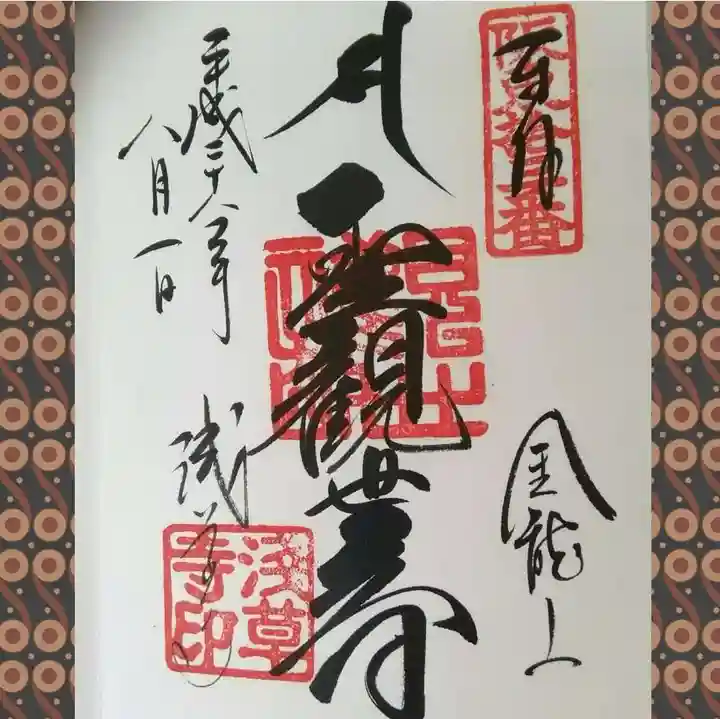 阪東拾三番
奉拝
金龍山
聖觀世音
平成二十八年
八月一日
浅草寺
浅草寺印